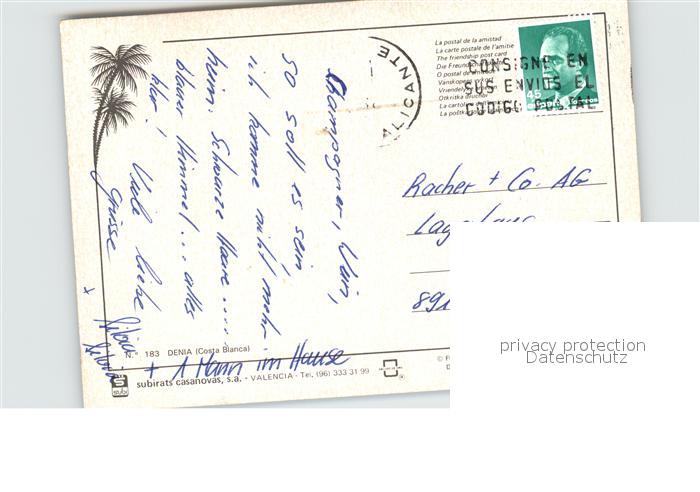 La postal de la amistad
La carte postale de l'amitie
The friendship post card
Die Freunds
O postal de
Vänskapens
Vriendely
Otkritka druzhby
La cartol
La pošt
ALICANTE
CONSIGNE EN
SUS ENVIOS EL
CODIGO POSTAL
45
Champagner, Wein,
so soll es sein,
ich komme nicht mehr
heim. Schwarze Haare....
blauer Himmel... alles
hier!
Viele liebe
Grüsse
+ 1 Mann im Hause
Racher + Co. AG
891
N.º 183 DENIA (Costa Blanca)
subi
subirats casanovas, s.a. - VALENCIA - Tel. (96) 333 31 99
privacy protection
Datenschutz